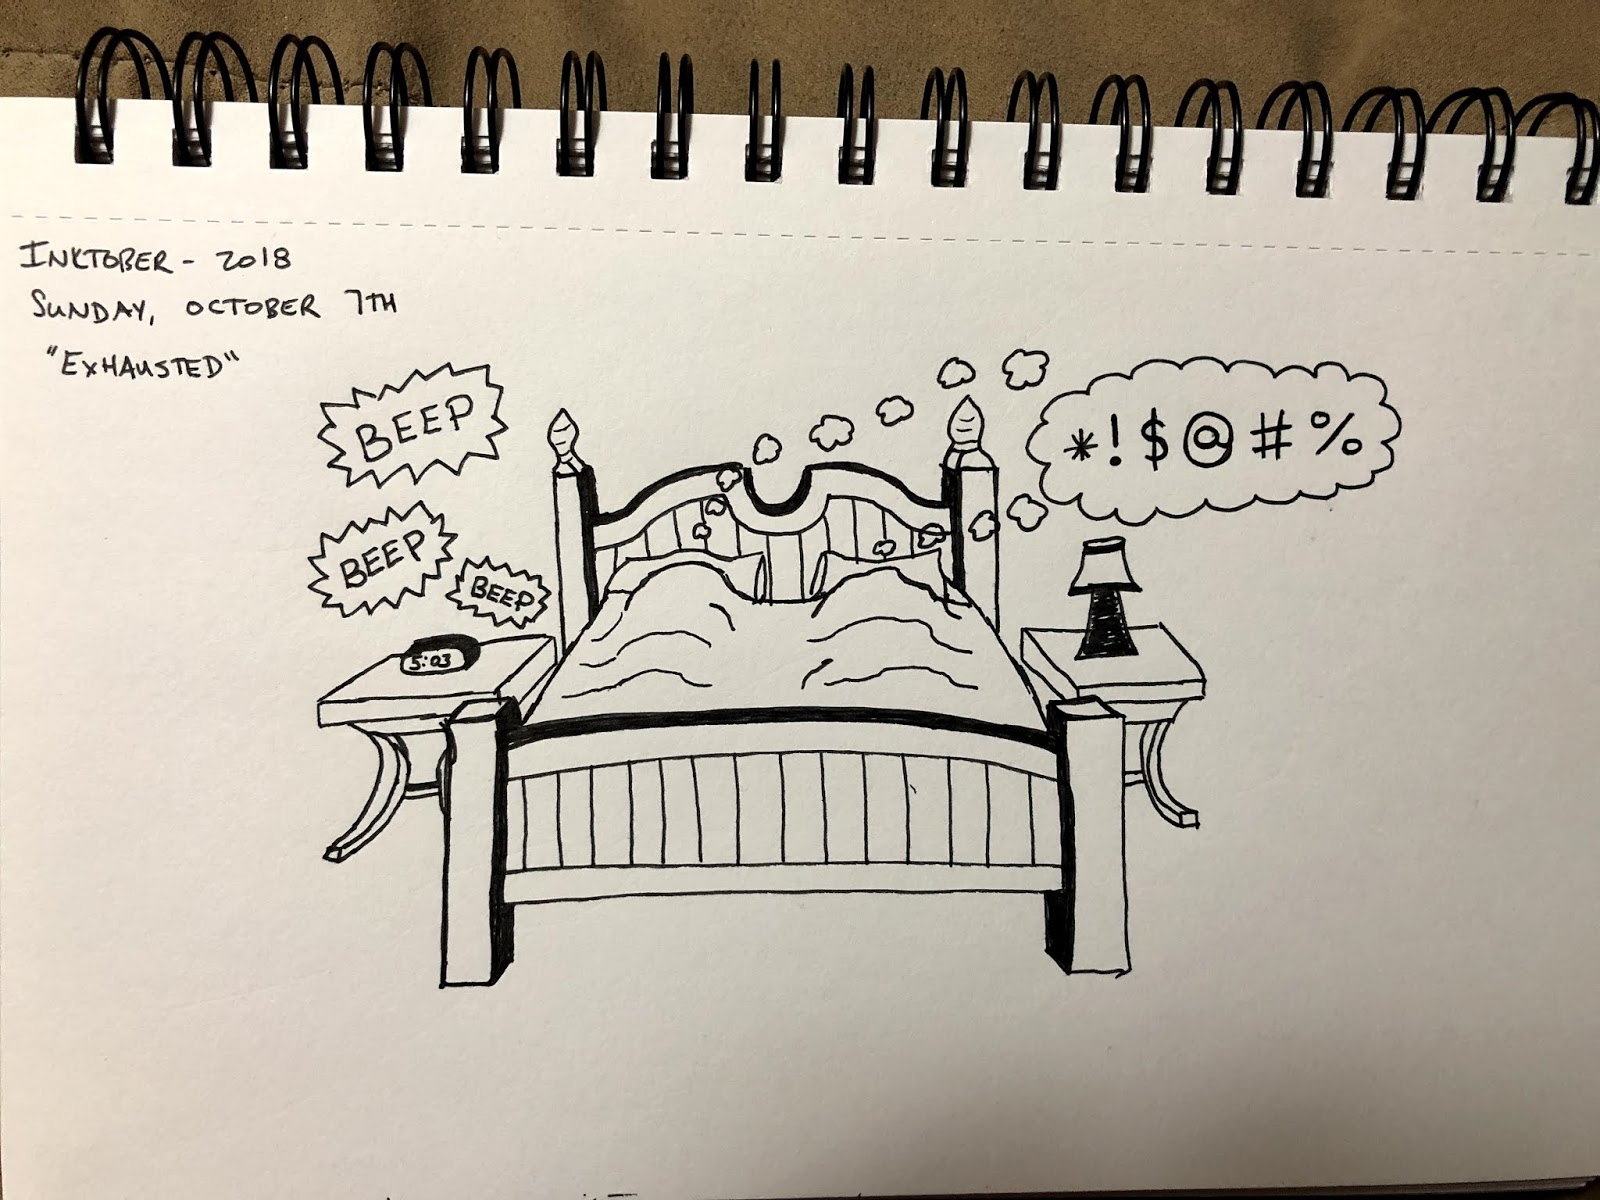 INKTOBER - 2018
SUNDAY, OCTOBER 7TH
"EXHAUSTED"
BEEP
*!$@#%
BEEP
BEEP
5:03